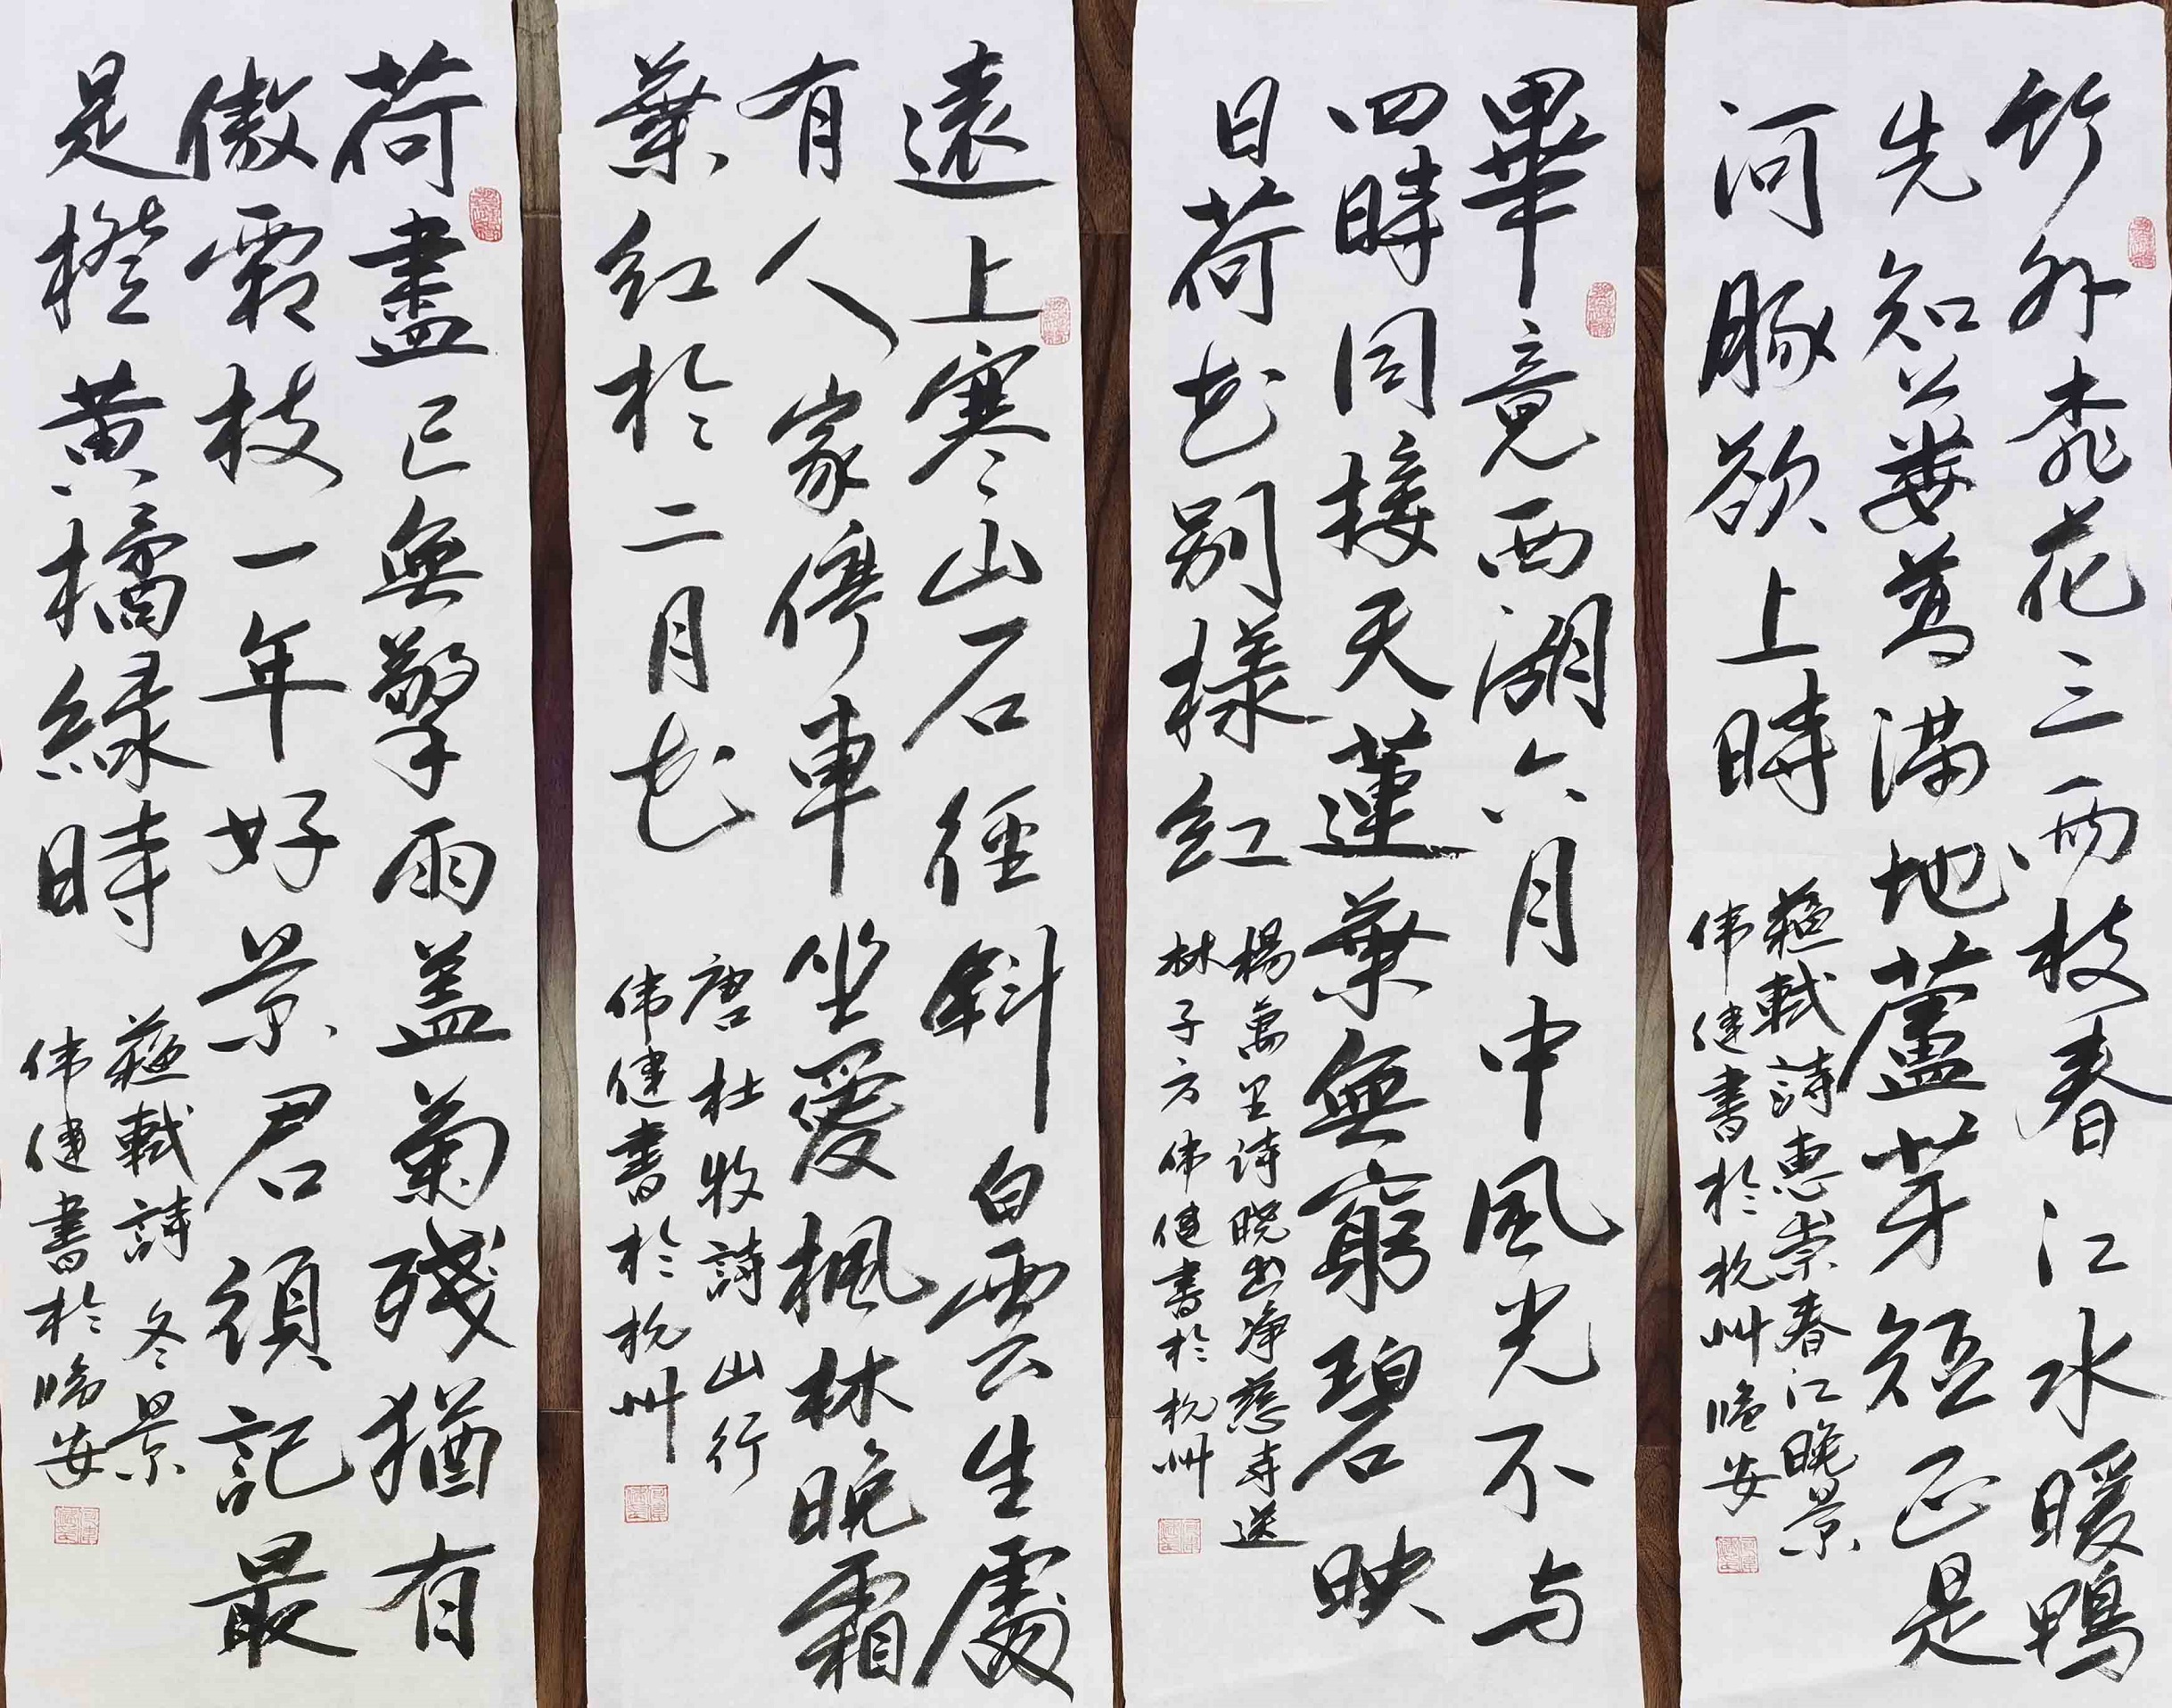 竹外桃花三兩枝春江水暖鴨
先知蔞蒿满地蘆芽短正是
河豚欲上時
蘇軾詩惠崇春江晚景
伟健書於杭州临安
畢竟西湖六月中風光不与
四時同接天蓮葉無窮碧映
日荷花别樣红
楊萬里诗晚出净慈寺送
林子方伟健書於杭州
遠上寒山石徑斜白雲生處
有人家停車坐愛楓林晚霜
葉红於二月花
唐杜牧詩山行
伟健書於杭州
荷盡已無擎雨盖菊殘猶有
傲霜枝一年好景君須記最
是橙黄橘緑時
蘇軾詩冬景
伟健書於临安